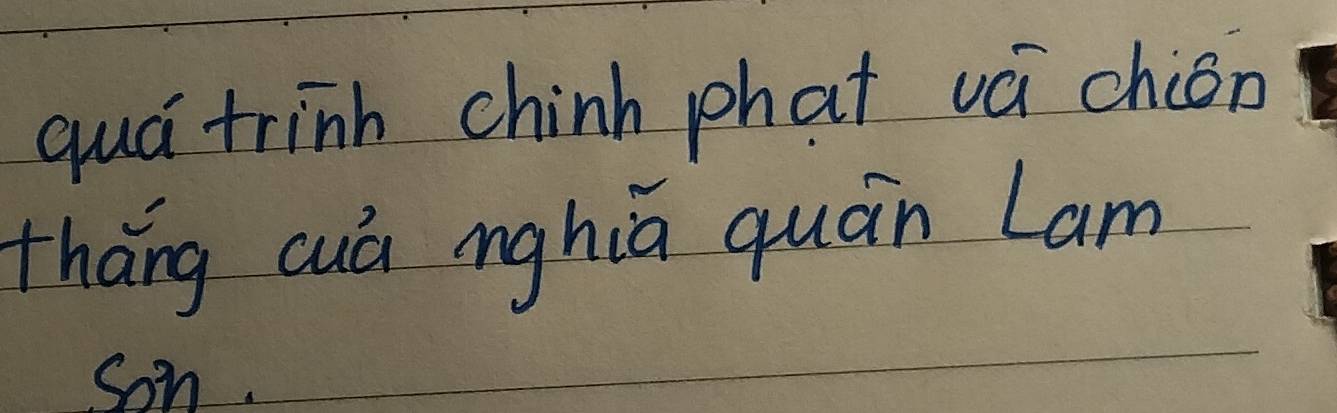 quá trình chinh phạt và chiến
thắng của nghĩa quân Lam
Sơn.